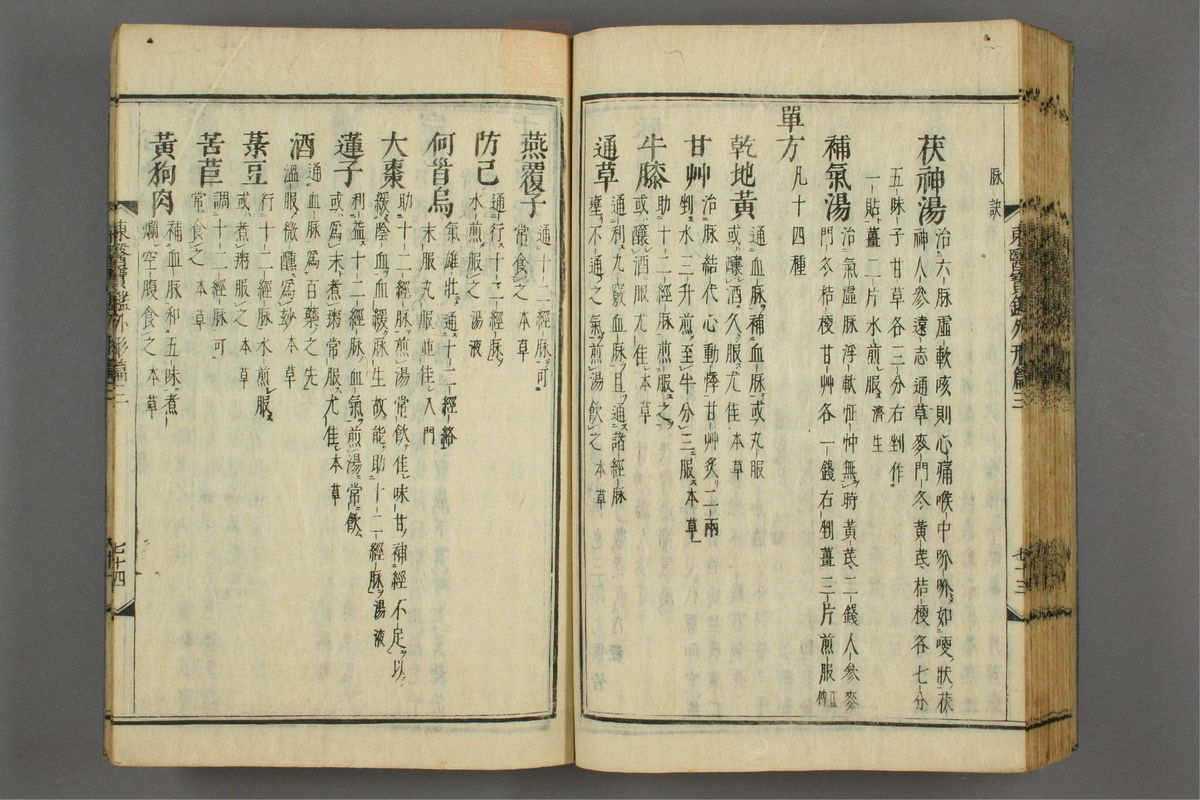 脉訣
茯神湯 治六脉虛軟咳則心痛喉中吤吤如哽狀茯
神人參遠志通草麥門冬黃芪桔梗各七分
五味子甘草各三分右剉作
一貼薑二片水煎服 濟生
補氣湯 治氣虛脉浮軟怔忡無時黃芪二錢人參麥
門冬桔梗甘艸各一錢右剉薑三片煎服 正傳
單方 凡十四種
乾地黃 通血脉補血脉或丸服
或釀酒久服尤佳 本草
甘艸 治脉結代心動悸甘艸炙二兩
剉水三升煎至半分三服 本草
牛膝 助十二經脉煎服之
或釀酒服尤佳 本草
通草 通利九竅血脉且通諸經脉
壅不通之氣煎湯飮之 本草
東醫寶鑑外形篇三
七十三
燕覆子 通十二經脉可
常食之 本草
防己 通行十二經脉
水煎服之 湯液
何首烏 氣雄壯通十二經絡
末服丸服並佳 入門
大棗 助十二經脉煎湯常飮佳味甘補經不足以
緩陰血血緩脉生故能助十二經脉 湯液
蓮子 利益十二經脉血氣煎湯常飮
或爲末煮粥常服尤佳 本草
酒 通血脉爲百藥之先
溫服微醺爲妙 本草
菉豆 行十二經脉水煎服
或煮粥服之 本草
苦苣 調十二經脉可
常食之 本草
黃狗肉 補血脉和五味煮
爛空腹食之 本草
東醫寶鑑外形篇三
七十四